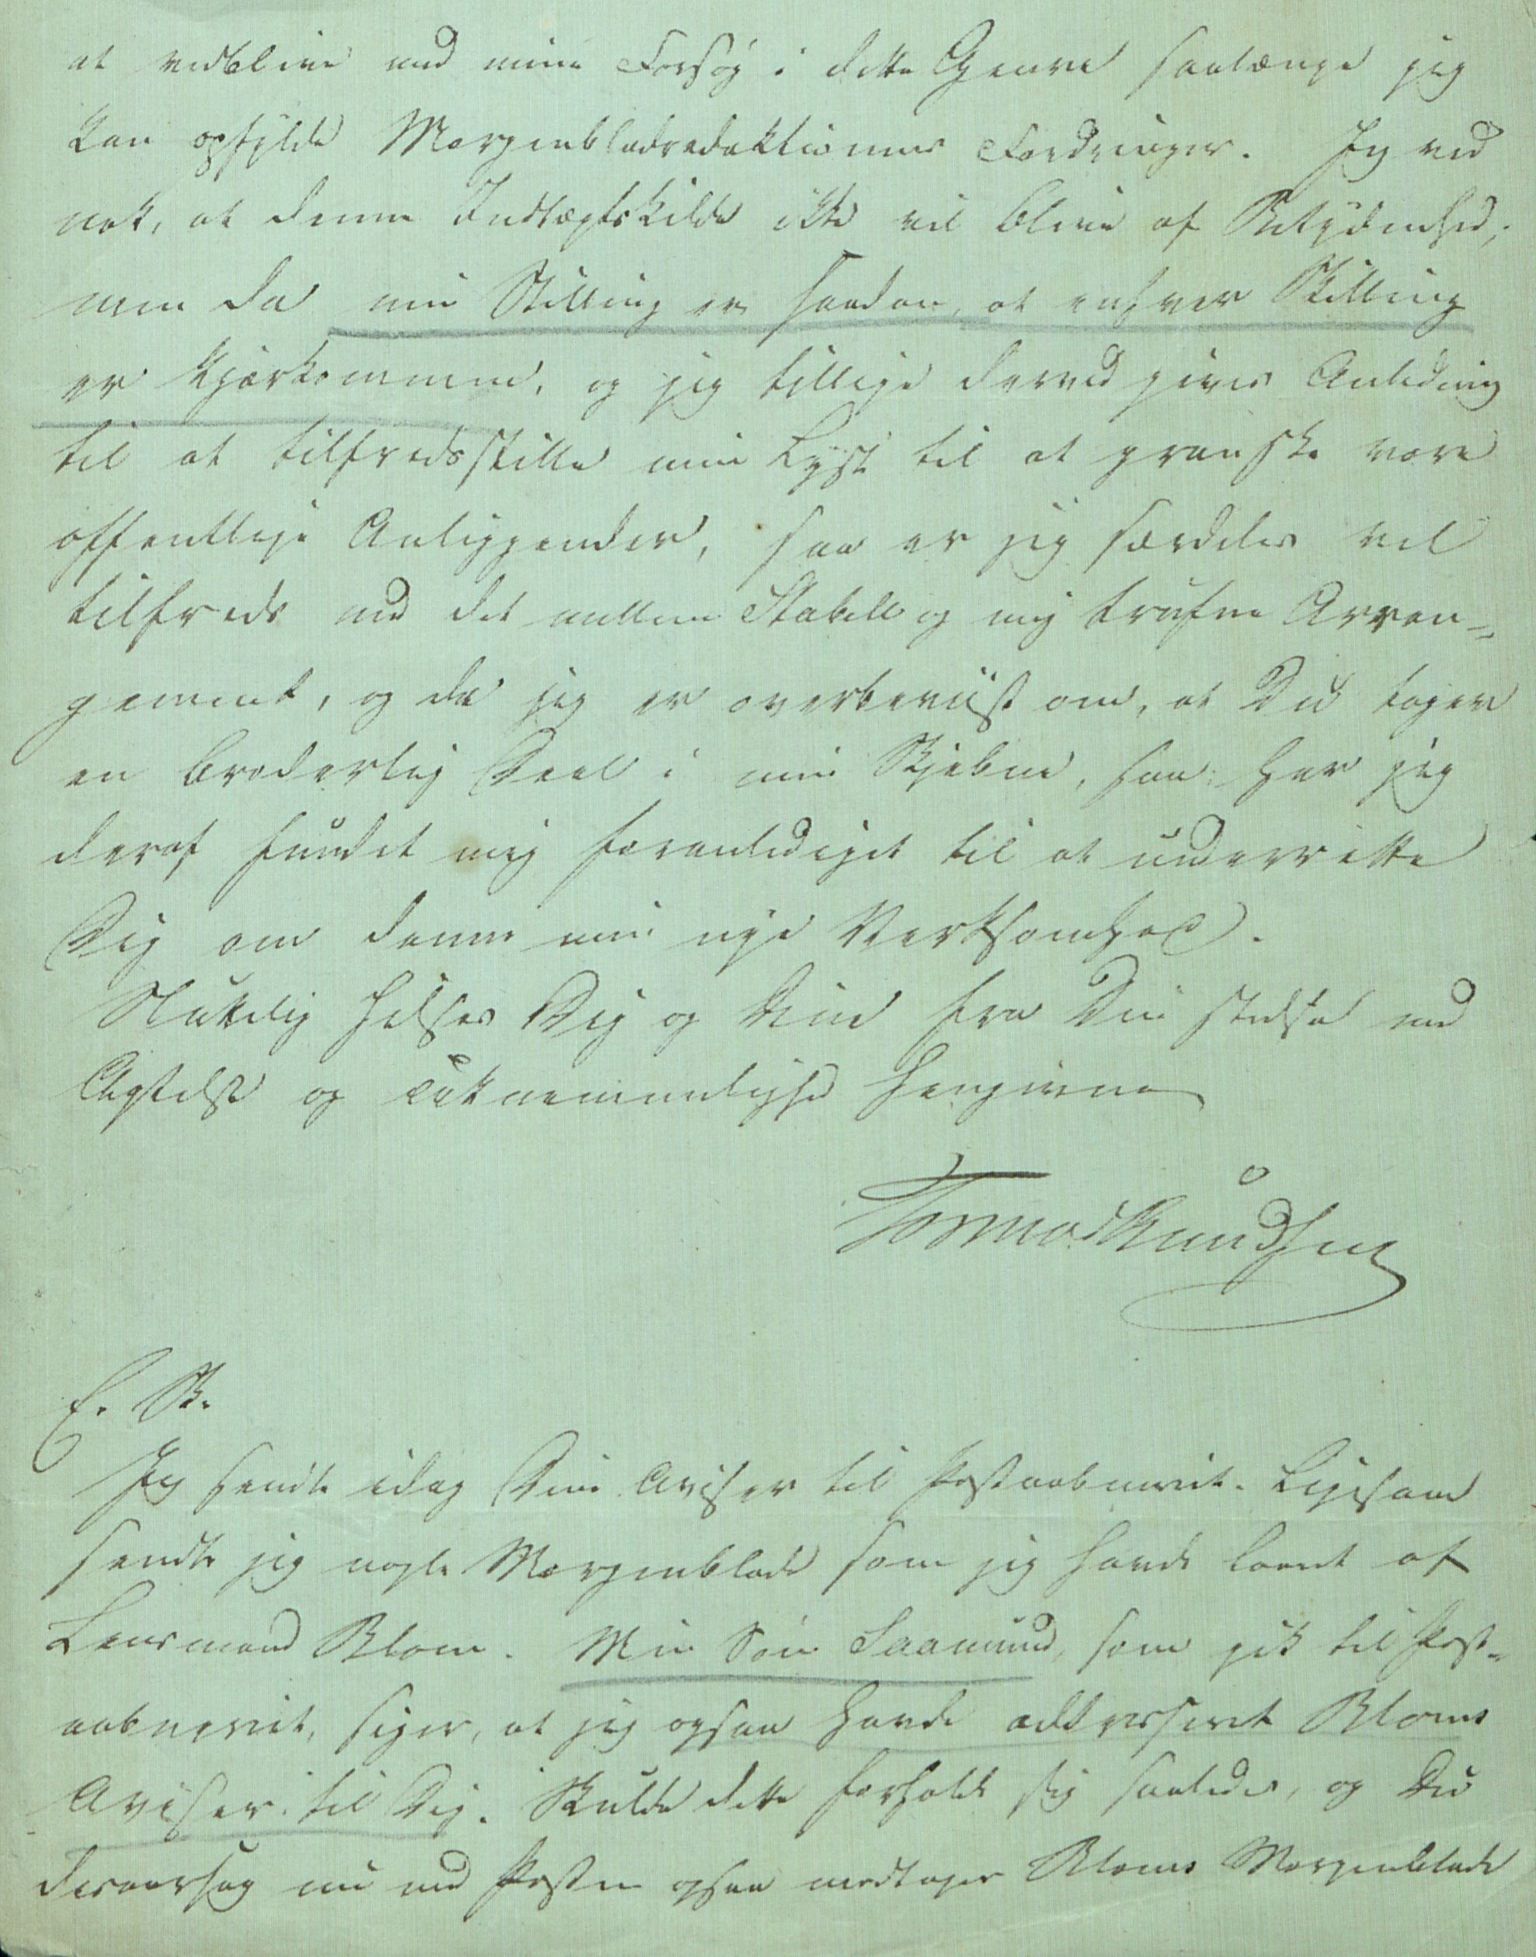 at vedblive med mine Forsøg i dette Genre saalænge jeg
kan opfylde Morgenbladredaktionens Fordringer. Jeg ved
nok, at denne Indtægtskilde ikke vil blive af Betydenhed;
men da min Stilling er saadan, at enhver Skilling
er kjærkommen, og jeg tillige derved gives Anledning
til at tilfredsstille min Lyst til at granske vore
offentlige Anliggender, saa er jeg særdeles vel
tilfreds med det mellem Stabell og mig trufne Arran-
gement, og da jeg er overbeviist om, at Du tager
en broderlig Deel i min Skjebne, saa har jeg
deraf fundet mig foranlediget til at underrette
Dig om denne min nye Verksomhed.
Slutelig hilses Dig og Dine fra Din stedse med
Agtelse og Taknemmelighed hengivne
Tormod Knudsen
E. Sk.
Jeg sendte idag Dine Aviser til Postaabneriet. Ligesom
sendte jeg nogle Morgenblade som jeg havde laant af
Lensmand Blom. Min Søn Saamund, som gik til Post-
aabneriet, siger, at jeg ogsaa havde addresseret Bloms
Aviser til Dig. Skulde dette forholde sig saaledes, og Du
desaarsag nu med Posten ogsaa modtager Bloms Morgenblade